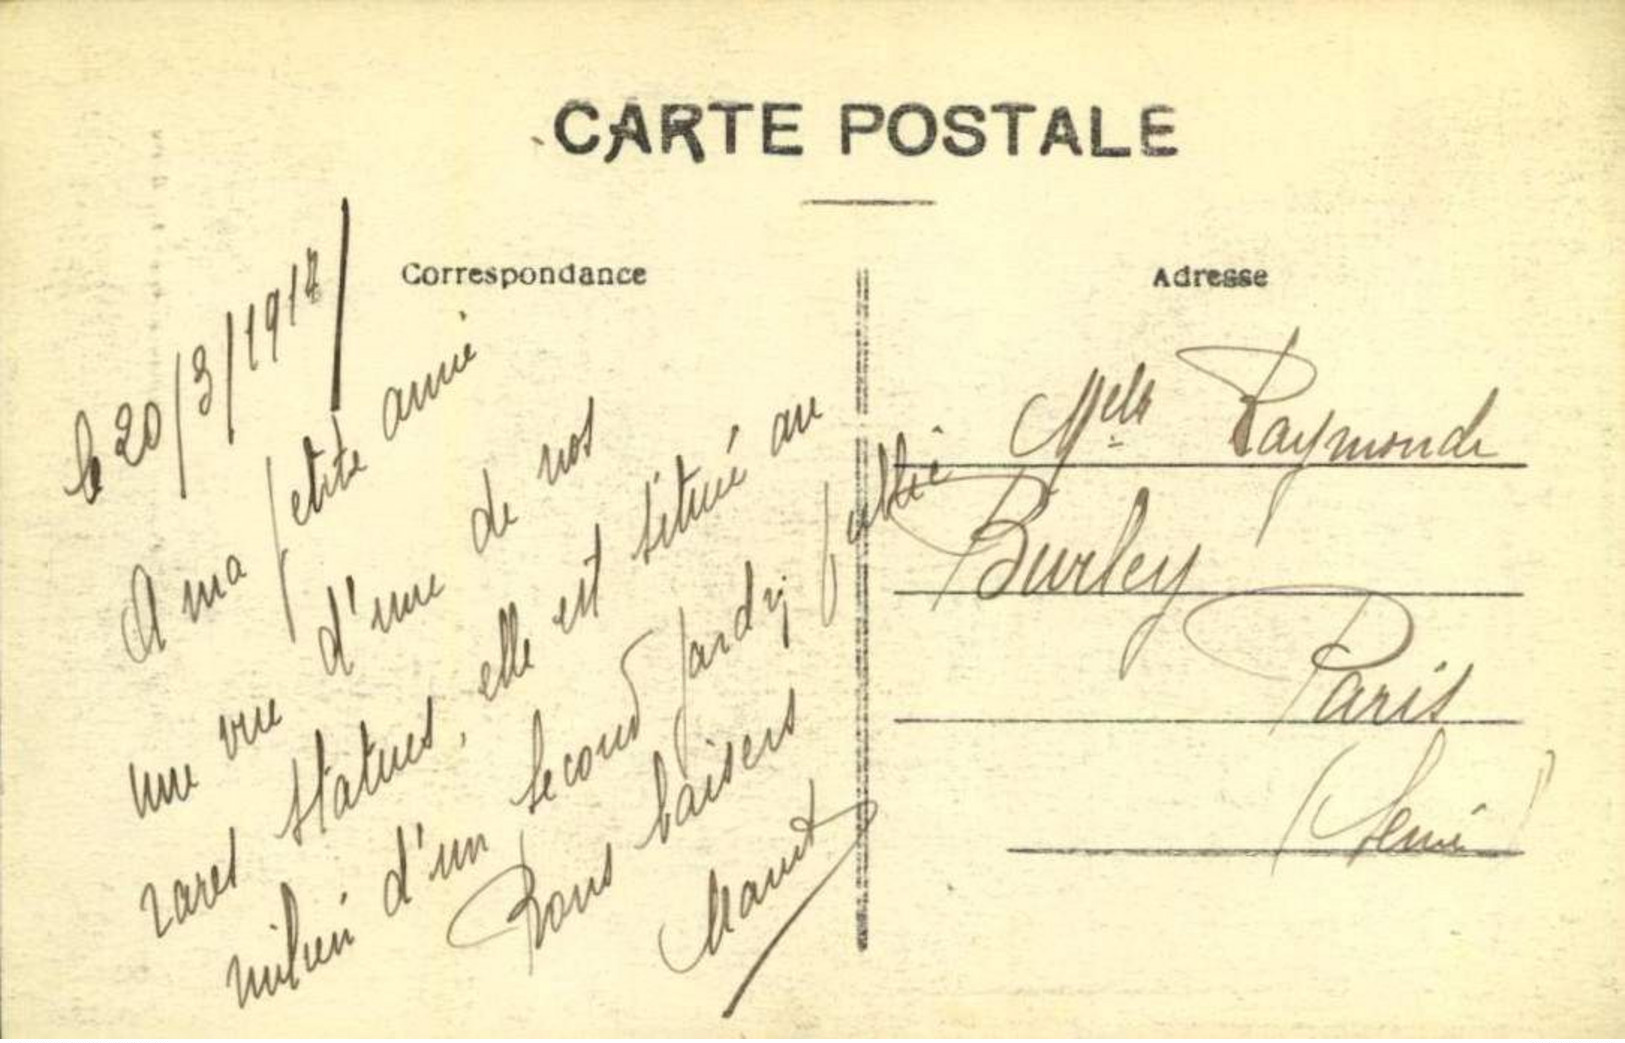 CARTE POSTALE
Correspondance
Adresse
le 20/3/191
A ma petite amie
une vue d'une de nos
rares statues, elle est située au
milieu d'un second jardin public
Bons baisers
Melle Raymonde
Burley
Paris
(Seine)